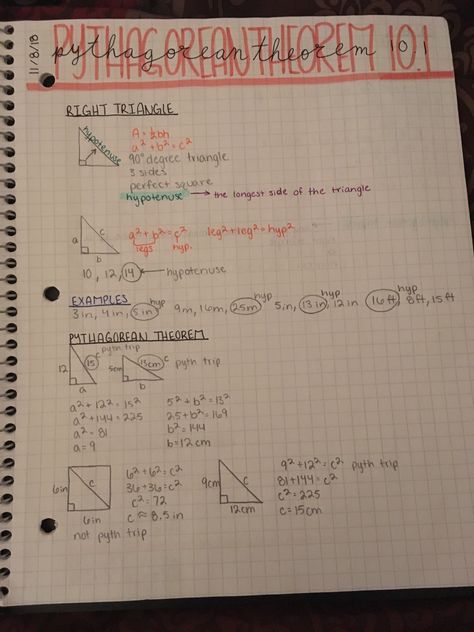 11/8/18
PYTHAGOREAN THEOREM 10.1
pythagorean theorem 10.1
RIGHT TRIANGLE
hypotenuse
A = ½bh
a² + b² = c²
90° degree triangle
3 sides
perfect square
hypotenuse → the longest side of the triangle
a c b
a² + b² = c² leg² + leg² = hyp²
legs hyp.
10, 12, 14 ← hypotenuse
EXAMPLES
3in, 4in, 5in hyp 9m, 16m, 25m hyp 5in, 13in hyp, 12in 16ft hyp, 8ft, 15ft
PYTHAGOREAN THEOREM
12 15 c a pyth trip
5cm 13cm c b pyth trip
a² + 12² = 15²
a² + 144 = 225
a² = 81
a = 9
5² + b² = 13²
25 + b² = 169
b² = 144
b = 12cm
6in c 6in
not pyth trip
6² + 6² = c²
36 + 36 = c²
c² = 72
c ≈ 8.5in
9cm c 12cm
9² + 12² = c² pyth trip
81 + 144 = c²
c² = 225
c = 15cm